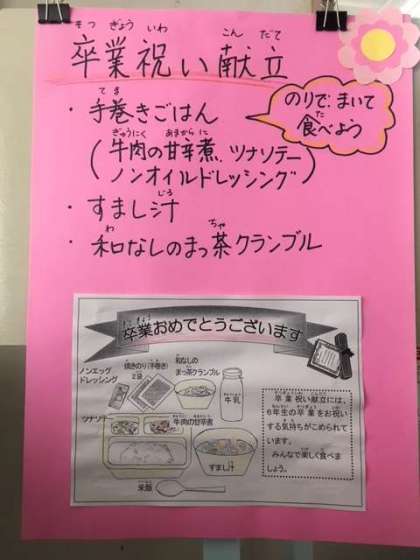 そつ ぎょう いわ こん だて
卒業祝い献立
てま
・手巻きごはん
のりで、まいて
た
食べよう
ぎゅうにく あまから に
(牛肉の甘辛煮、ツナソテー
ノンオイルドレッシング)
じる
・すまし汁
わ ちゃ
・和なしのまっ茶クランブル
卒業おめでとうございます
ノンエッグ
ドレッシング
焼きのり(手巻き)
2袋
和なしの
まっ茶クランブル
牛乳
ツナソテー
牛肉の甘辛煮
すまし汁
米飯
卒業祝い献立には、
6年生の卒業をお祝い
する気持ちがこめられて
います。
みんなで楽しく食べま
しょう。